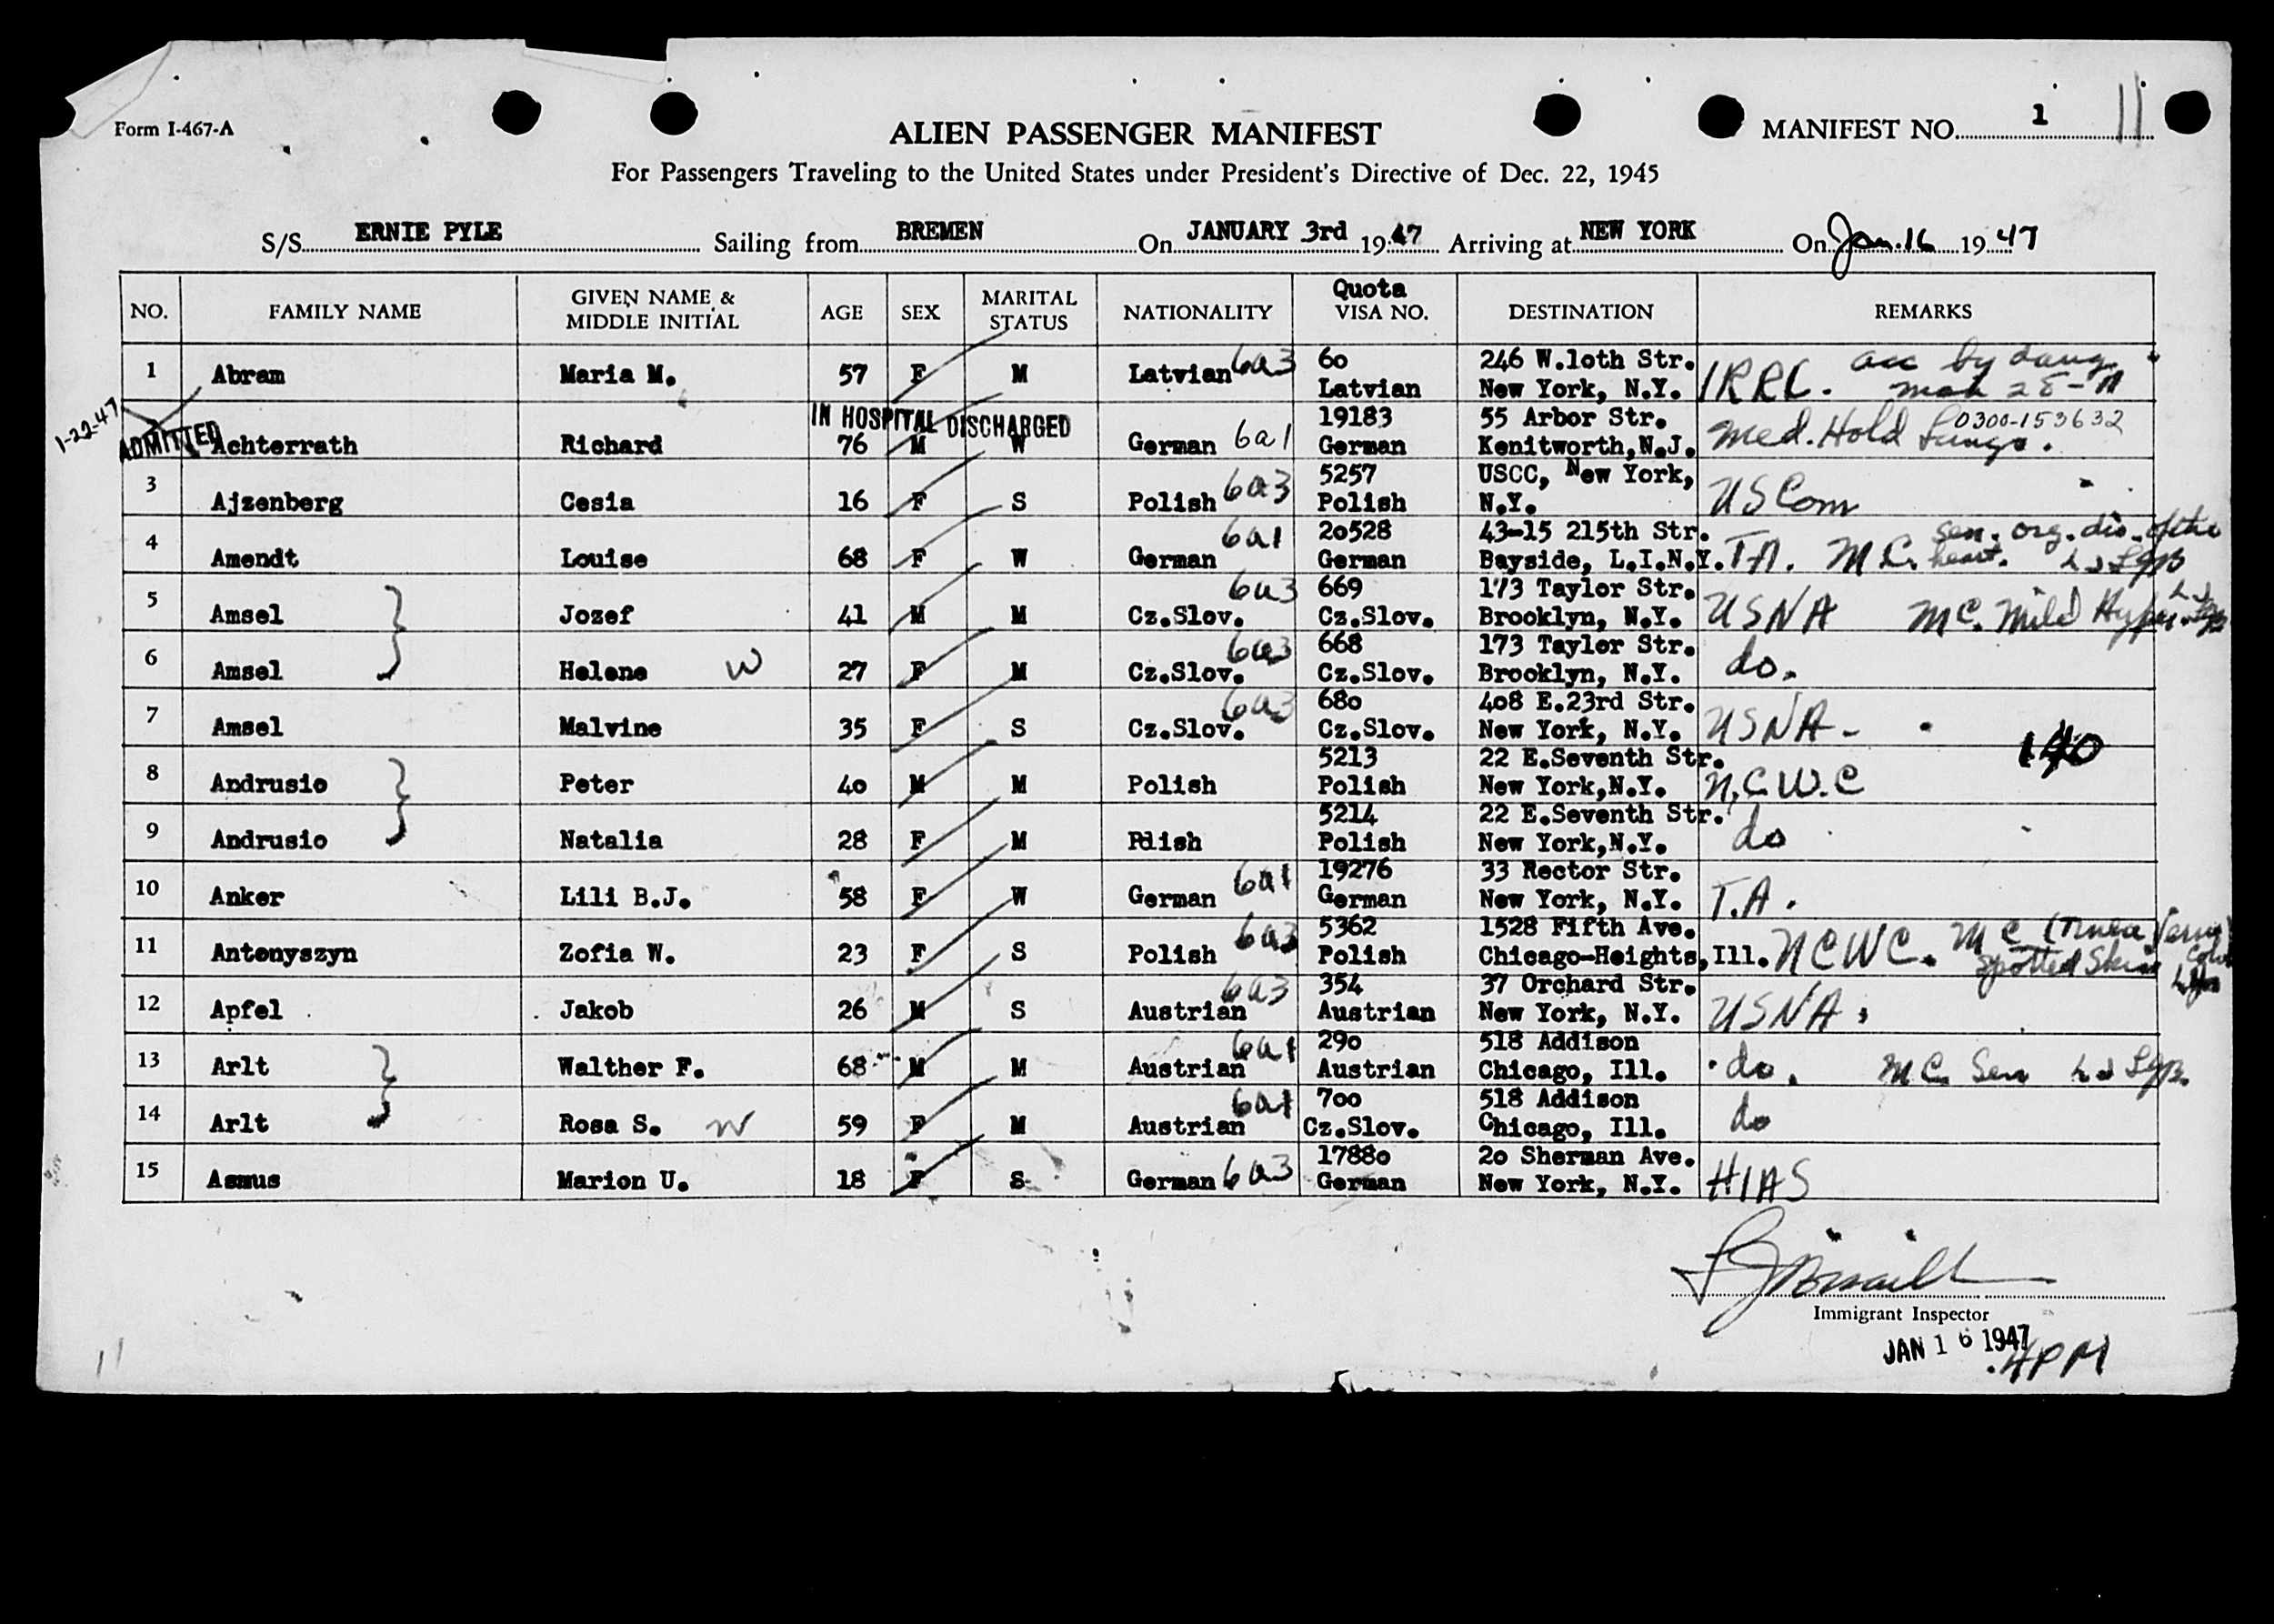 Form I-467-A
ALIEN PASSENGER MANIFEST
MANIFEST NO. 1 11
For Passengers Traveling to the United States under President's Directive of Dec. 22, 1945
S/S ERNIE PYLE Sailing from BREMEN On JANUARY 3rd 1947 Arriving at NEW YORK On Jan. 16 1947
NO. FAMILY NAME GIVEN NAME & MIDDLE INITIAL AGE SEX MARITAL STATUS NATIONALITY Quota VISA NO. DESTINATION REMARKS
60 246 W.1oth Str. acc by daug
1 Abram Maria M. 57 F M Latvian 6a3 Latvian New York, N.Y. IRRC.
1-22-47 ADMITTED IN HOSPITAL DISCHARGED 19183 55 Arbor Str. 0300-153632
Achterrath Richard 76 M W German 6a1 German Kenitworth,N.J. Med. Hold
5257 USCC, New York,
3 Ajzenberg Cesia 16 F S Polish 6a3 Polish N.Y. US Com
20528 43-15 215th Str. sen. org. dis. of the
4 Amendt Louise 68 F W German 6a1 German Bayside, L.I.N.Y. T.A. M C. heart.
669 173 Taylor Str.
5 Amsel Jozef 41 M M Cz.Slov. 6a3 Cz.Slov. Brooklyn, N.Y. USNA MC. Mild
668 173 Taylor Str.
6 Amsel Helene W 27 F M Cz.Slov. 6a3 Cz.Slov. Brooklyn, N.Y. do.
680 408 E.23rd Str.
7 Amsel Malvine 35 F S Cz.Slov. 6a3 Cz.Slov. New York, N.Y. USNA -
5213 22 E.Seventh Str. 140
8 Andrusio Peter 40 M M Polish Polish New York,N.Y. N.C.W.C
5214 22 E.Seventh Str.
9 Andrusio Natalia 28 F M Plish Polish New York,N.Y. do
19276 33 Rector Str.
10 Anker Lili B.J. 58 F W German 6a1 German New York, N.Y. T.A.
5362 1528 Fifth Ave.
11 Antonyszyn Zofia W. 23 F S Polish 6a3 Polish Chicago-Heights,Ill. NCWC. MC spotted Skin
354 37 Orchard Str.
12 Apfel Jakob 26 M S Austrian 6a3 Austrian New York, N.Y. USNA.
290 518 Addison
13 Arlt Walther F. 68 M M Austrian 6a1 Austrian Chicago, Ill. do. MC. Sen
700 518 Addison
14 Arlt Rosa S. W 59 F M Austrian 6a1 Cz.Slov. Chicago, Ill. do
17880 20 Sherman Ave.
15 Asmus Marion U. 18 F S German 6a3 German New York, N.Y. HIAS
Immigrant Inspector
JAN 16 1947
4PM
11